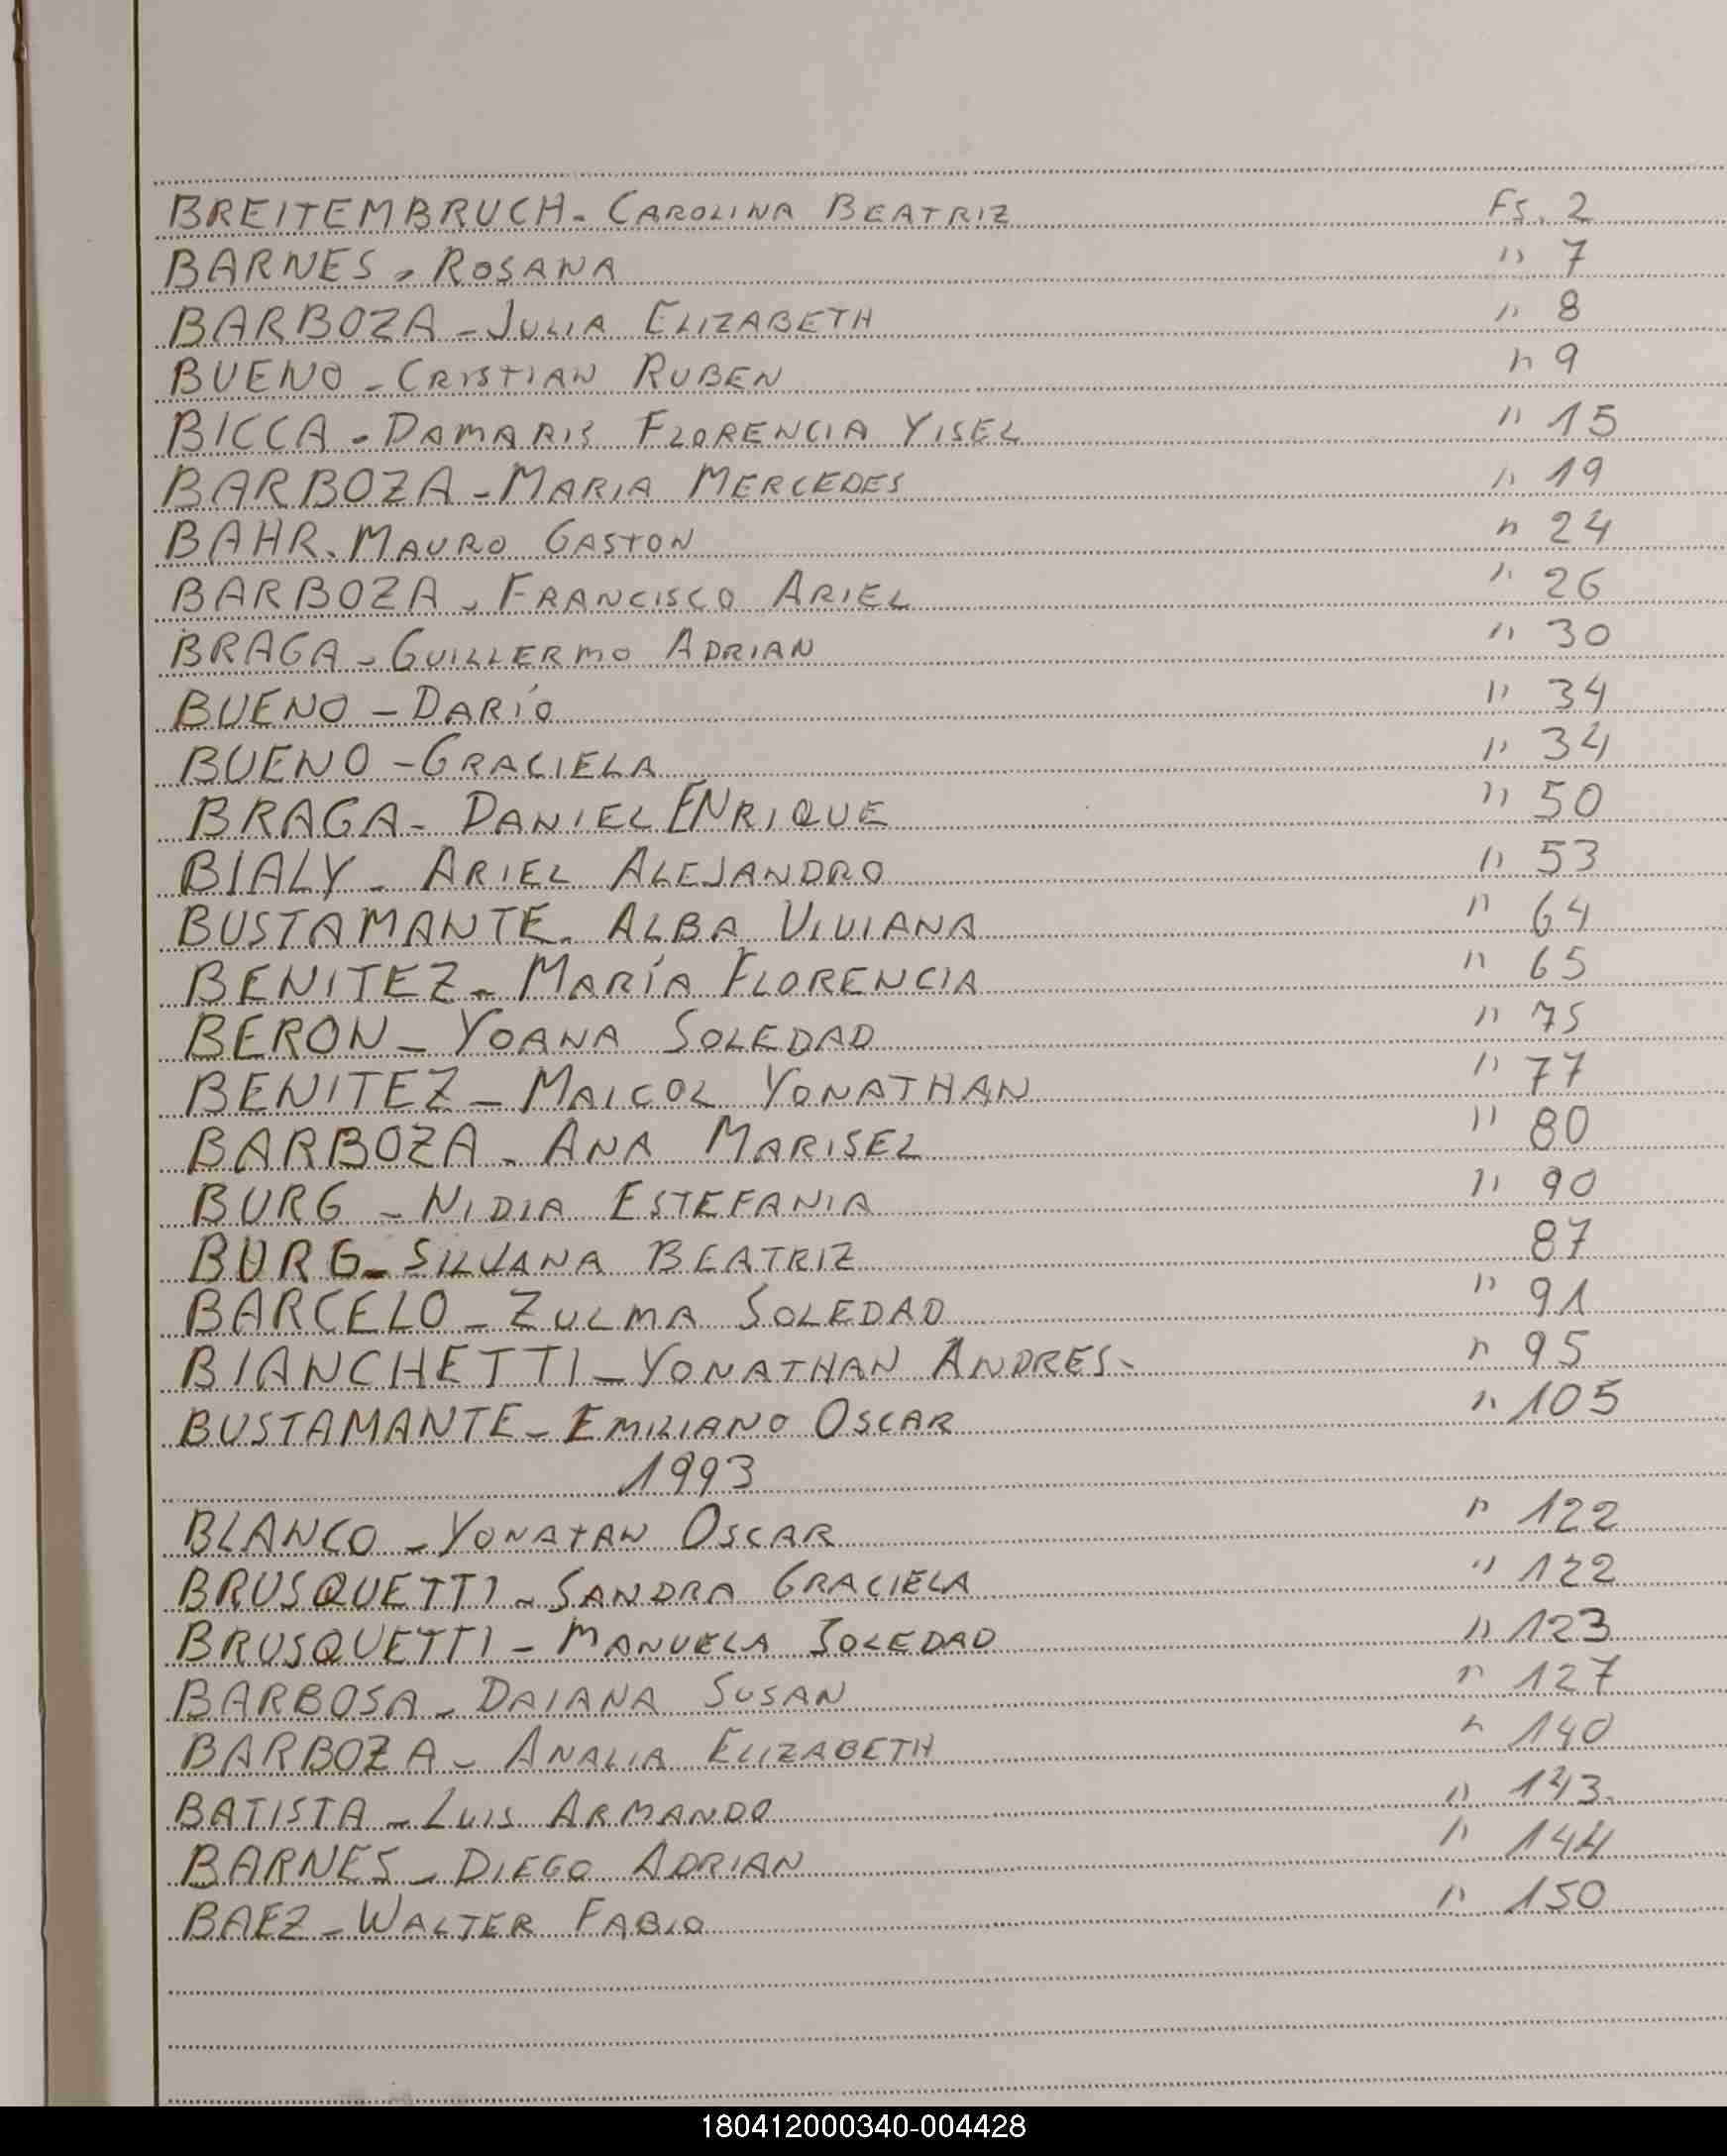 BREITEMBRUCH - CAROLINA BEATRIZ Fs. 2
BARNES - ROSANA " 7
BARBOZA - JULIA ELIZABETH " 8
BUENO - CRISTIAN RUBEN " 9
BICCA - DAMARIS FLORENCIA YISEL " 15
BARBOZA - MARIA MERCEDES " 19
BAHR - MAURO GASTON " 24
BARBOZA - FRANCISCO ARIEL " 26
BRAGA - GUILLERMO ADRIAN " 30
BUENO - DARÍO " 34
BUENO - GRACIELA " 34
BRAGA - DANIEL ENRIQUE " 50
BIALY - ARIEL ALEJANDRO " 53
BUSTAMANTE - ALBA VIVIANA " 64
BENITEZ - MARÍA FLORENCIA " 65
BERON - YOANA SOLEDAD " 75
BENITEZ - MAICOL YONATHAN " 77
BARBOZA - ANA MARISEL " 80
BURG - NIDIA ESTEFANIA " 90
BURG - SILVANA BEATRIZ 87
BARCELO - ZULMA SOLEDAD " 91
BIANCHETTI - YONATHAN ANDRES - " 95
BUSTAMANTE - EMILIANO OSCAR " 105
1993
BLANCO - YONATAN OSCAR " 122
BRUSQUETTI - SANDRA GRACIELA " 122
BRUSQUETTI - MANUELA SOLEDAD " 123
BARBOSA - DAIANA SUSAN " 127
BARBOZA - ANALIA ELIZABETH " 140
BATISTA - LUIS ARMANDO " 143.
BARNES - DIEGO ADRIAN " 144
BAEZ - WALTER FABIO " 150
180412000340-004428